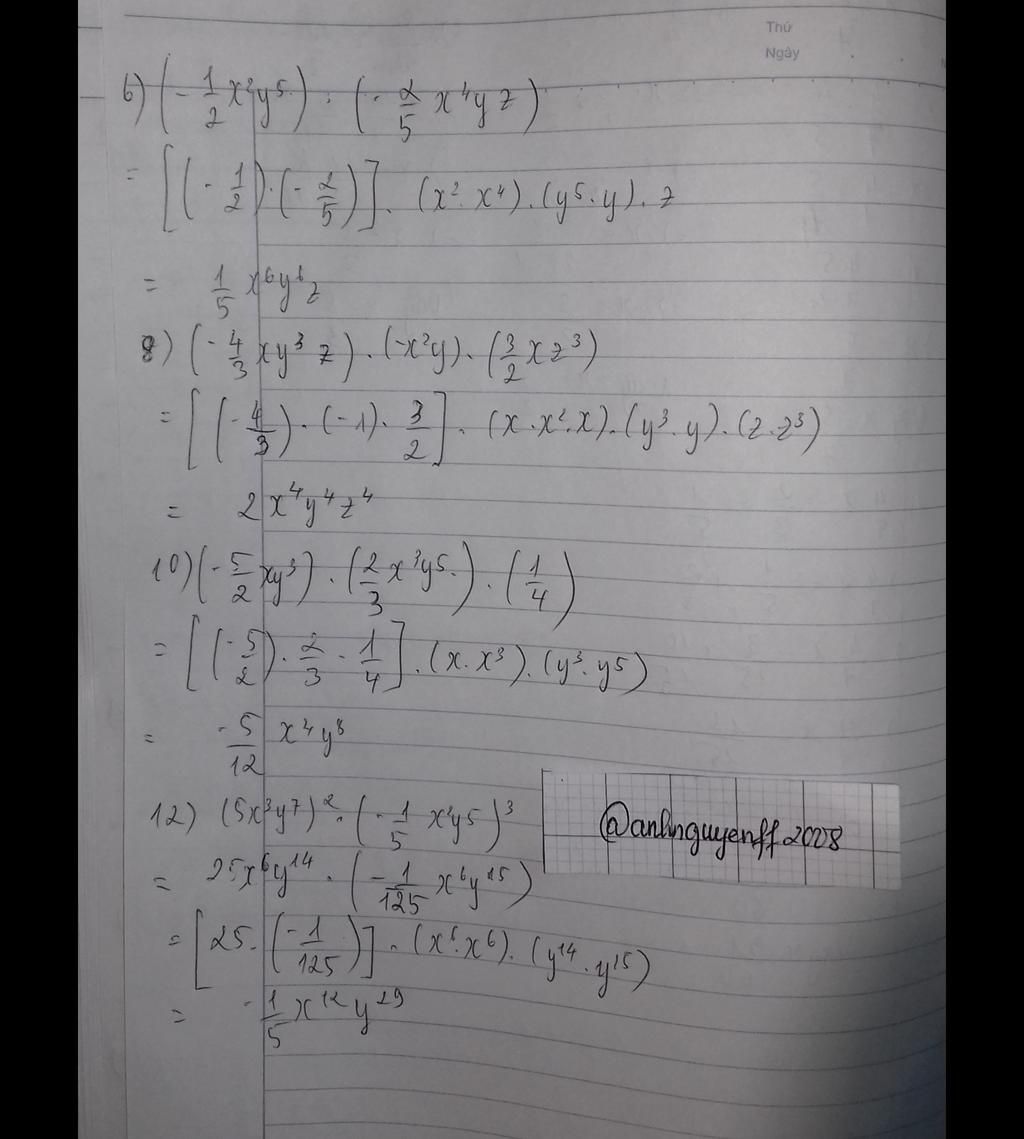 Thứ
Ngày
6) (-1/2 x²y⁵) . (-2/5 x⁴yz)
= [(-1/2).(-2/5)] . (x².x⁴).(y⁵.y).z
= 1/5 x⁶y⁶z
8) (-4/3 xy³z).(-x²y).(3/2 xz³)
= [(-4/3).(-1).3/2] . (x.x².x).(y³.y).(z.z³)
= 2x⁴y⁴z⁴
10) (-5/2 xy³).(2/3 x³y⁵).(1/4)
= [(-5/2).2/3.1/4].(x.x³).(y³.y⁵)
= -5/12 x⁴y⁸
12) (5x³y⁷)².(-1/5 x²y⁵)³
= 25x⁶y¹⁴.(-1/125 x⁶y¹⁵)
= [25.(-1/125)].(x⁶.x⁶).(y¹⁴.y¹⁵)
= -1/5 x¹²y²⁹
@anhnguyenff2008